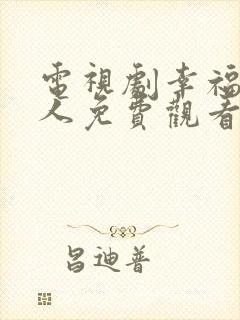 電視劇幸福
人免費觀看
昌迪普